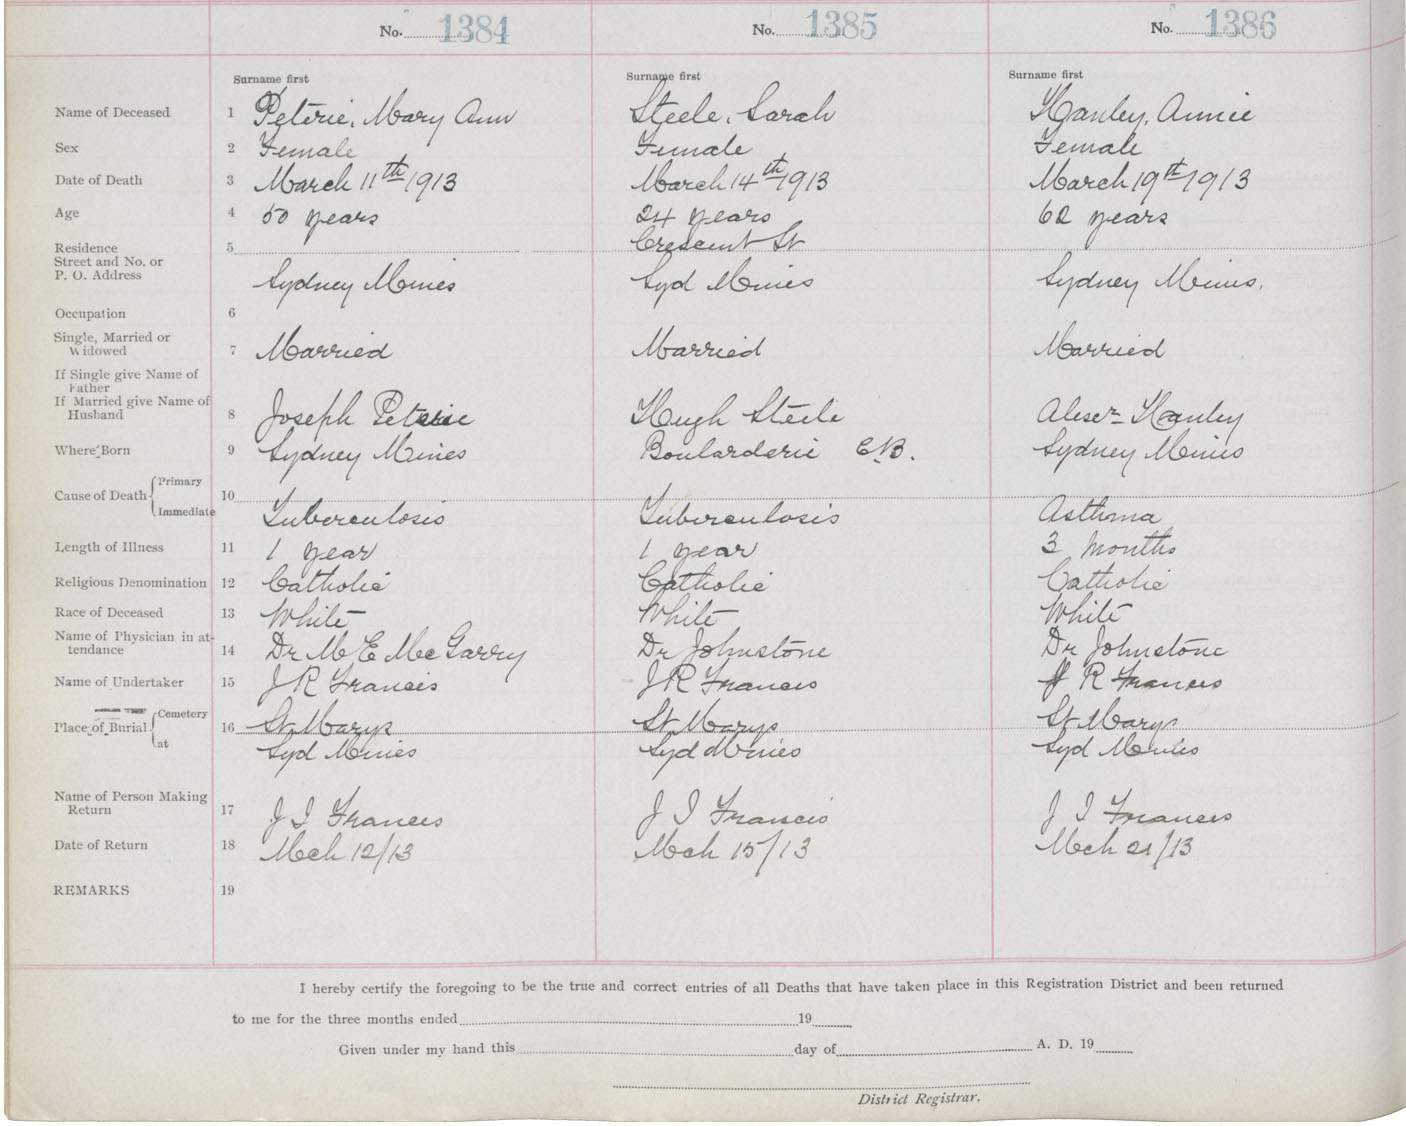 No. 1384 No. 1385 No. 1386
Surname first Surname first Surname first
Name of Deceased 1 Peterie, Mary Ann Steele, Sarah Hanley, Annie
Sex 2 Female Female Female
Date of Death 3 March 11th 1913 March 14th 1913 March 19th 1913
Age 4 50 years 24 years 62 years
Residence 5 Crescent St
Street and No. or
P. O. Address Sydney Mines Syd Mines Sydney Mines.
Occupation 6
Single, Married or
Widowed 7 Married Married Married
If Single give Name of
Father
If Married give Name of
Husband 8 Joseph Peterie Hugh Steele Hanley
Where Born 9 Sydney Mines Boularderie C.B. Sydney Mines
Cause of Death { Primary 10
Immediate Tuberculosis Tuberculosis Asthma
Length of Illness 11 1 year 1 year 3 months
Religious Denomination 12 Catholic Catholic Catholic
Race of Deceased 13 White White White
Name of Physician in at-
tendance 14 Dr M E McGarry Dr Johnstone Dr Johnstone
Name of Undertaker 15 J R Francis J R Francis J R Francis
Place of Burial { Cemetery 16 St Marys St Marys St Marys
at Syd Mines Syd Mines Syd Mines
Name of Person Making
Return 17 J I Francis J I Francis J I Francis
Date of Return 18 Mch 12/13 Mch 15/13 Mch 21/13
REMARKS 19
I hereby certify the foregoing to be the true and correct entries of all Deaths that have taken place in this Registration District and been returned
to me for the three months ended 19
Given under my hand this day of A. D. 19
District Registrar.